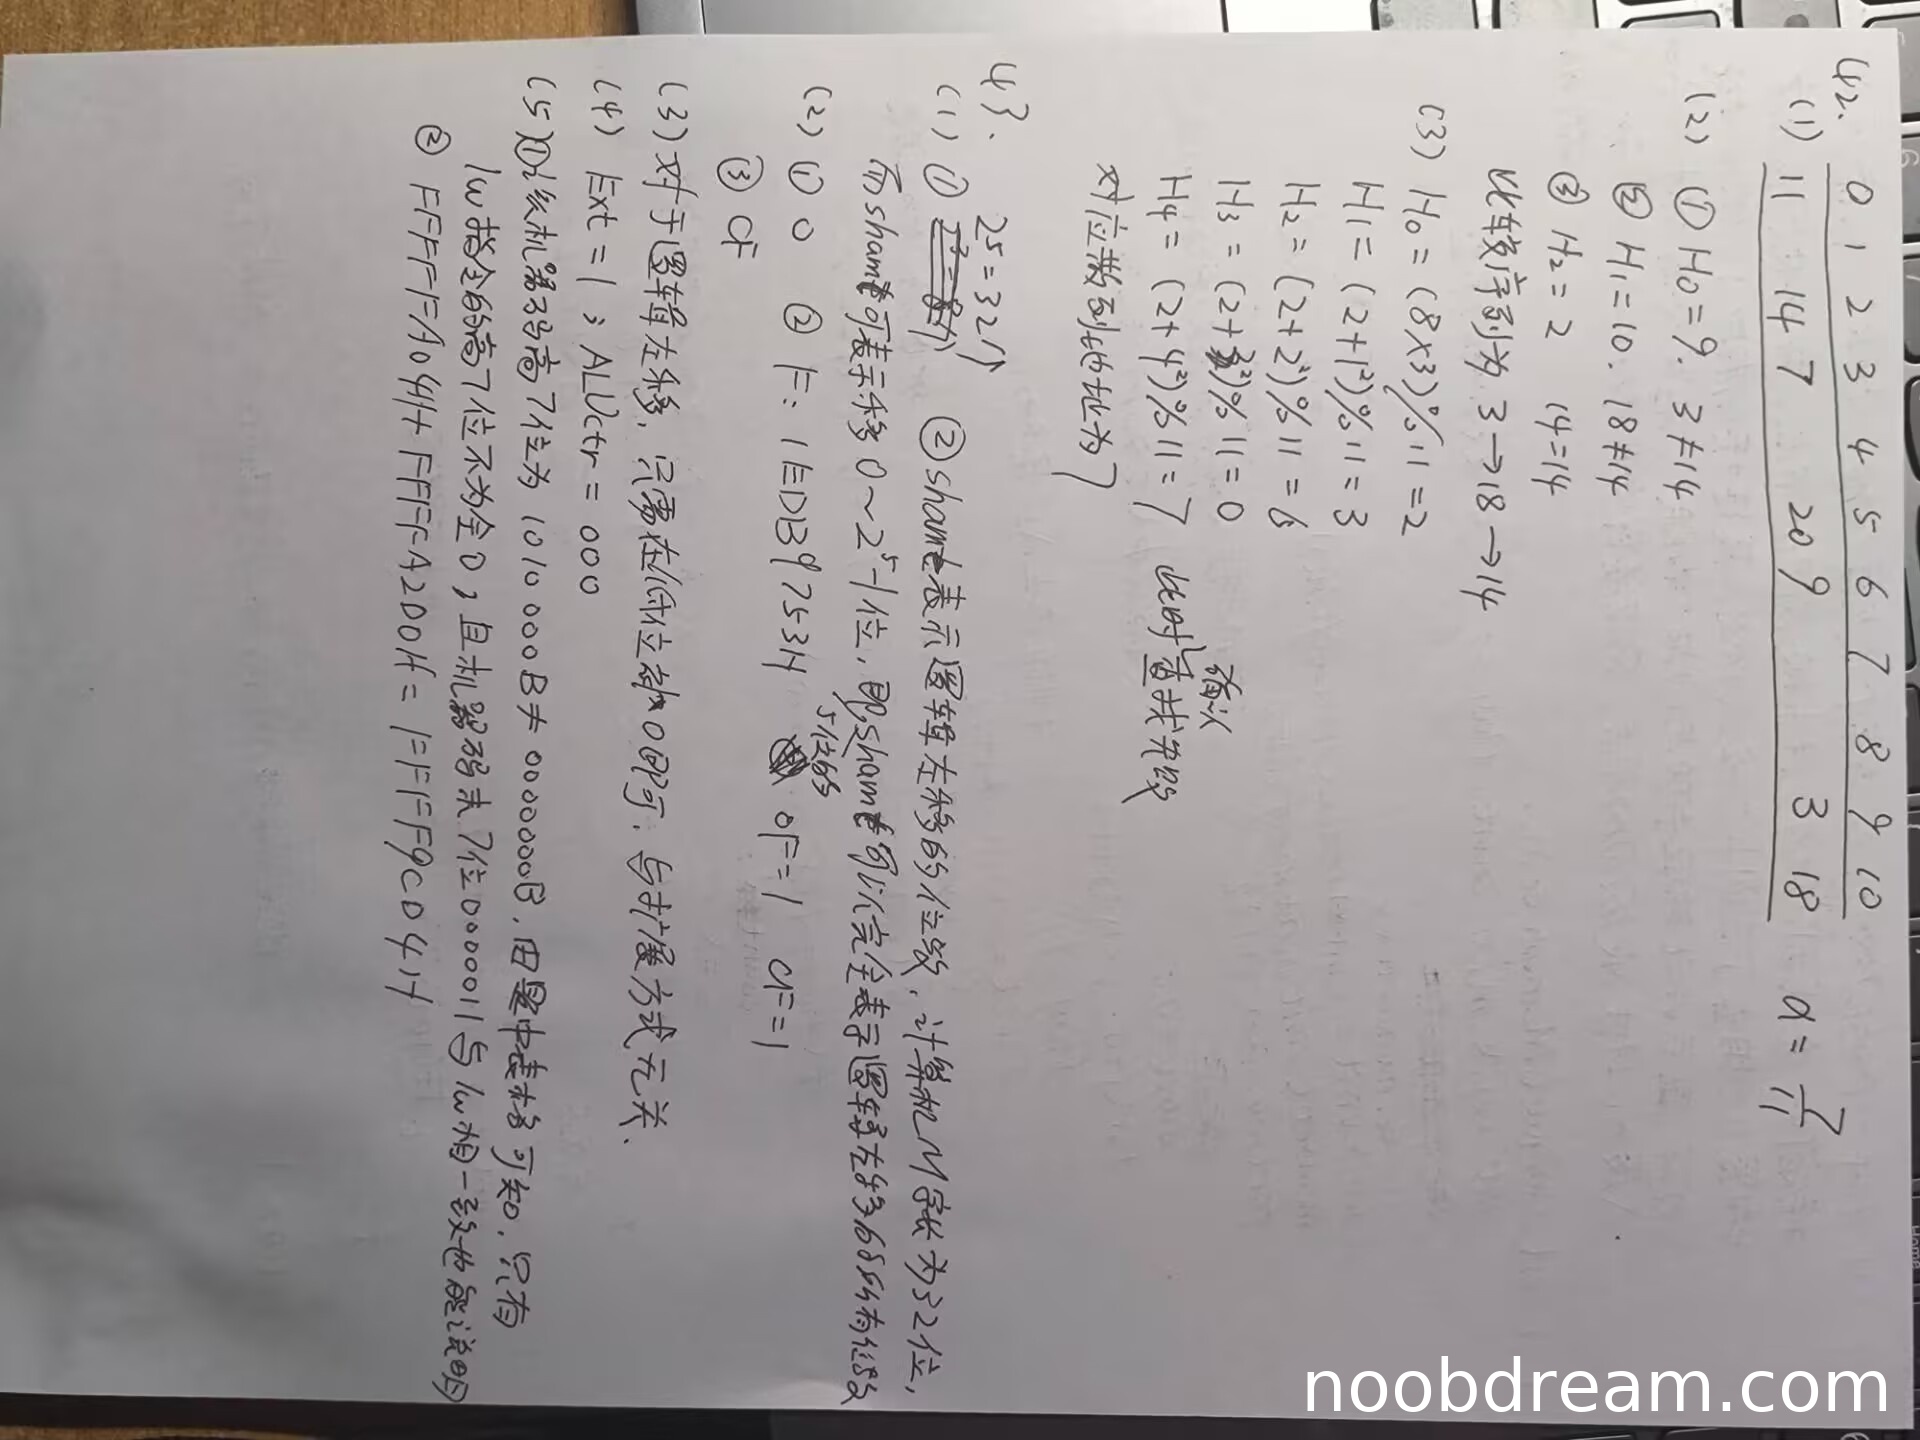 42.
(1) 0 1 2 3 4 5 6 7 8 9 10
11 14 7 20 9 3 18 α = 7/11
(2) ① H0 = 9. 3≠14
② H1 = 10. 18≠14
③ H2 = 2 14=14
比较序列为 3→18→14
(3) H0 = (8×3)%11 = 2
H1 = (2+1²)%11 = 3
H2 = (2+2²)%11 = 6
H3 = (2+3²)%11 = 0
H4 = (2+4²)%11 = 7 此时确认查找失败
对应散列地址为7
43.
(1) ① 2^5=32个 ② shamt表示逻辑左移的位数,计算机M字长为32位,
而shamt可表示移0~2^5-1位,即5位的shamt可以完全表示逻辑左移的所有位数
(2) ① 0 ② F: 1EDB9753H OF=1 CF=1
③ CF
(3) 对于逻辑左移,只需在低位补0即可,与扩展方式无关.
(4) Ext = 1 ; ALUctr = 000
(5) ① 该机器码高7位为 1010000B≠0000000B,由题中表格可知,只有
lw指令的高7位不为全0,且机器码末7位0000011与lw相一致也能说明
② FFFFA04H+FFFFA2D0H = FFFF9CD4H
noobdream.com